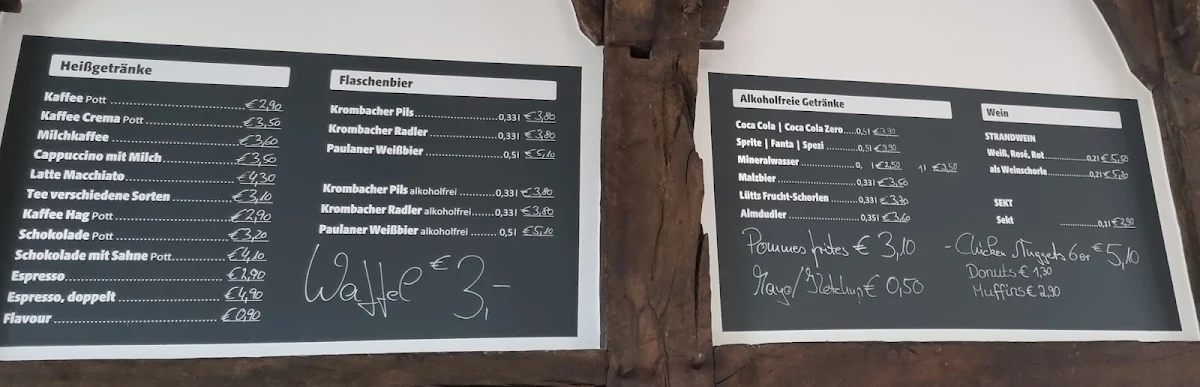 Heißgetränke
Kaffee Pott €2,90
Kaffee Crema Pott €3,50
Milchkaffee €3,60
Cappuccino mit Milch €3,50
Latte Macchiato €4,30
Tee verschiedene Sorten €3,10
Kaffee Hag Pott €2,90
Schokolade Pott €3,20
Schokolade mit Sahne Pott €4,10
Espresso €2,90
Espresso, doppelt €4,90
Flavour €0,90
Flaschenbier
Krombacher Pils 0,33l €3,80
Krombacher Radler 0,33l €3,80
Paulaner Weißbier 0,5l €5,10
Krombacher Pils alkoholfrei 0,33l €3,80
Krombacher Radler alkoholfrei 0,33l €3,80
Paulaner Weißbier alkoholfrei 0,5l €5,10
Waffel € 3,-
Alkoholfreie Getränke
Coca Cola | Coca Cola Zero 0,5l €3,90
Sprite | Fanta | Spezi 0,5l €3,90
Mineralwasser 0, l €2,50 1l €3,50
Malzbier 0,33l €3,50
Lütts Frucht-Schorlen 0,33l €3,70
Almdudler 0,35l €3,60
Pommes frites € 3,10
Mayo/Ketchup € 0,50
Wein
STRANDWEIN
Weiß, Rosé, Rot 0,2l €5,50
als Weinschorle 0,2l €5,20
SEKT
Sekt 0,1l €2,90
- Chicken Nuggets 6er € 5,10
Donuts € 1,30
Muffins € 2,90